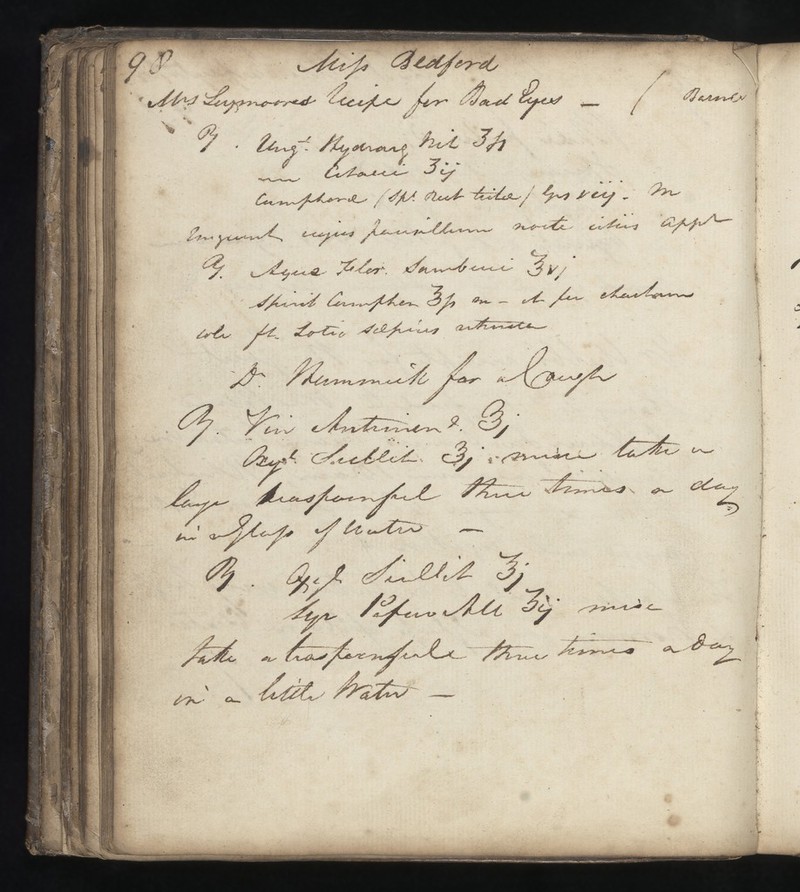 98 Miss Bedford
Mrs recipe for Bad Eyes — ( Barnes
℞. Ungt. Hydrarg Nit ʒſs
Cetacei ʒij
Camphoræ (Spt. Rect tritæ) grs viij. M
cujus pauxillum nocte Appt
℞. Aquæ Flor. Sambuci ℥vj
Spirit Camphor ʒſs m – et per chartam
cola ft. Lotio sæpius utenda
Dr. Hammick for a Cough
℞. Vin Antimon. ℥j
Oxyl. Scillit. ℥j mixe take a
large teaspoonful three times a day
in a Glass of Water —
℞. Oxyl Scillit ℥j
Syr Papav Alb ℥ij mixe
take a teaspoonfule three times a Day
in a little Water —